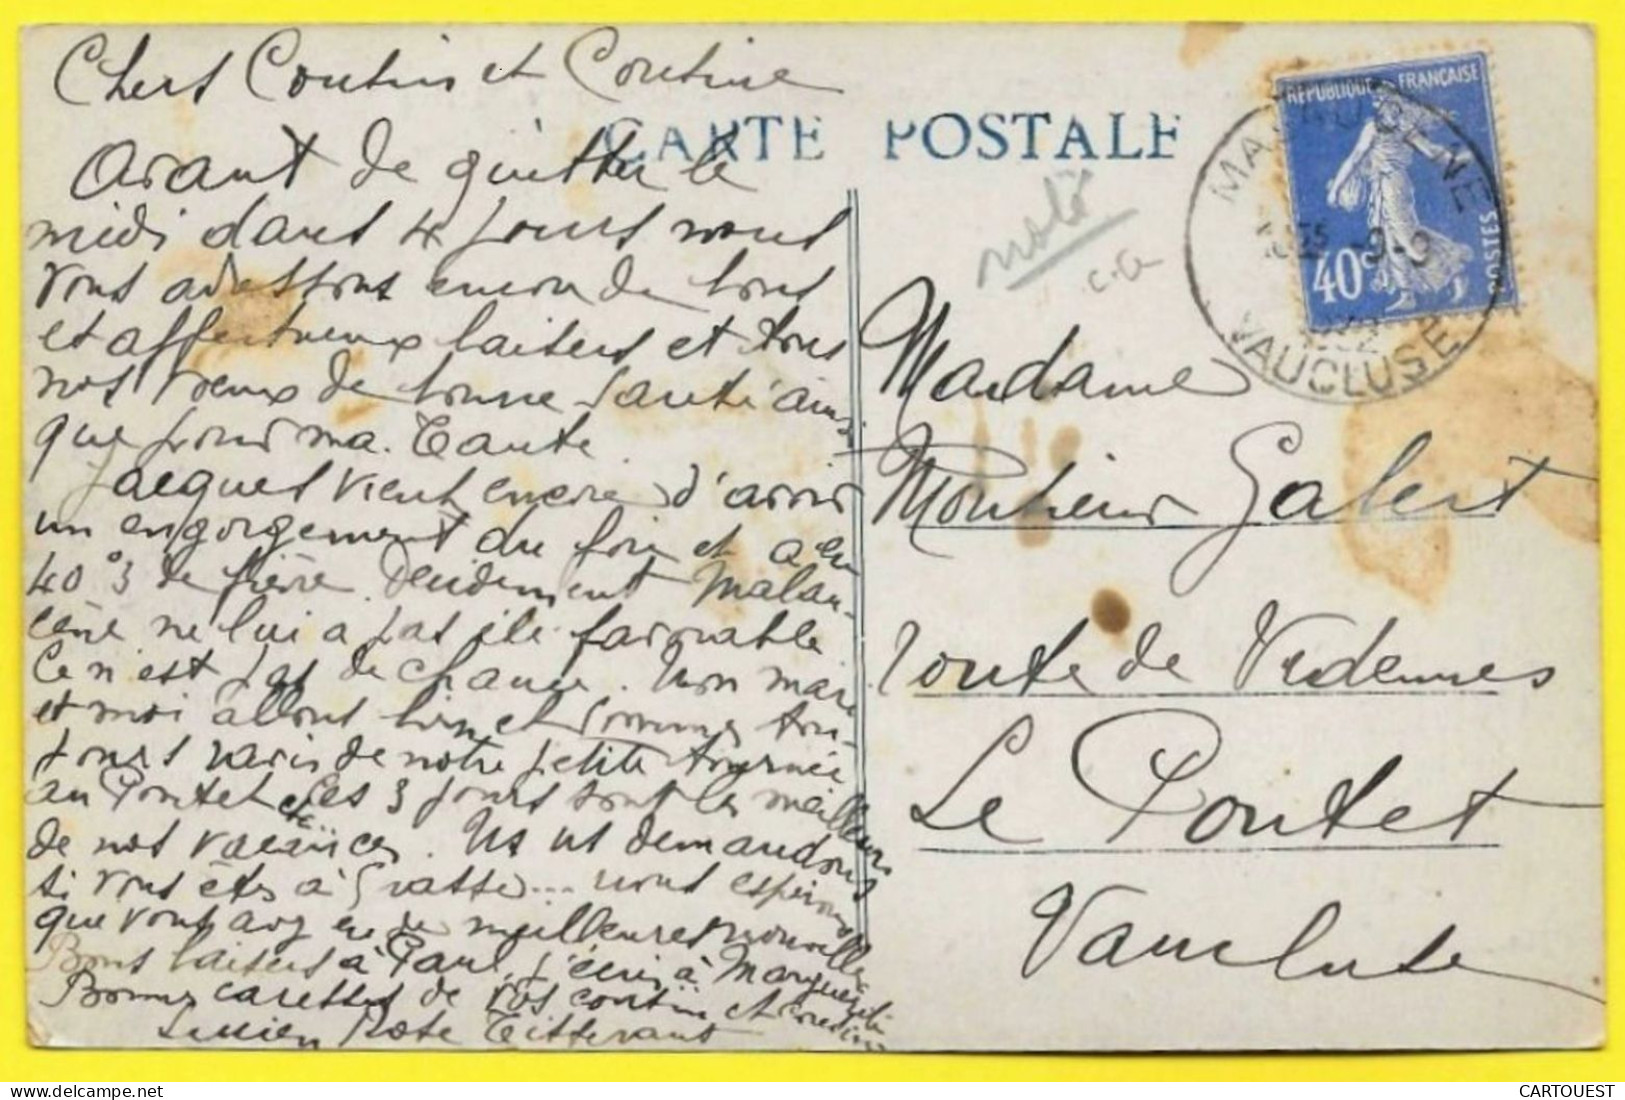 Chers Cousins et Cousine
CARTE POSTALE
Avant de quitter le
midi dans 4 jours nous
vous adressons encore de bons
et affectueux baisers et tous
nos voeux de bonne santé ainsi
que pour ma Tante.
Jacques vient encore d'avoir
un engorgement du foie et a eu
40°3 de fièvre. Décidement Malau-
cène ne lui a pas été favorable
Ce n'est pas de chance. Mon mari
et moi allons bien et sommes tou-
jours ravis de notre petite tournée
au Pontet et ces 3 jours sont les meilleurs
de nos vacances. Ns vs demandons
si vous êtes à Grasse... nous espérons
que vous avez eu de meilleures nouvelles
Bons baisers à Paul, j'écris à Marguerite
Bonnes caresses de vos cousins et cousine
Lucien Rose Titterant
noté
RÉPUBLIQUE FRANÇAISE
40c
POSTES
MALAUCENE
9-9
VAUCLUSE
Madame
Monsieur Galert
route de Vedennes
Le Pontet
Vaucluse
CARTOUEST